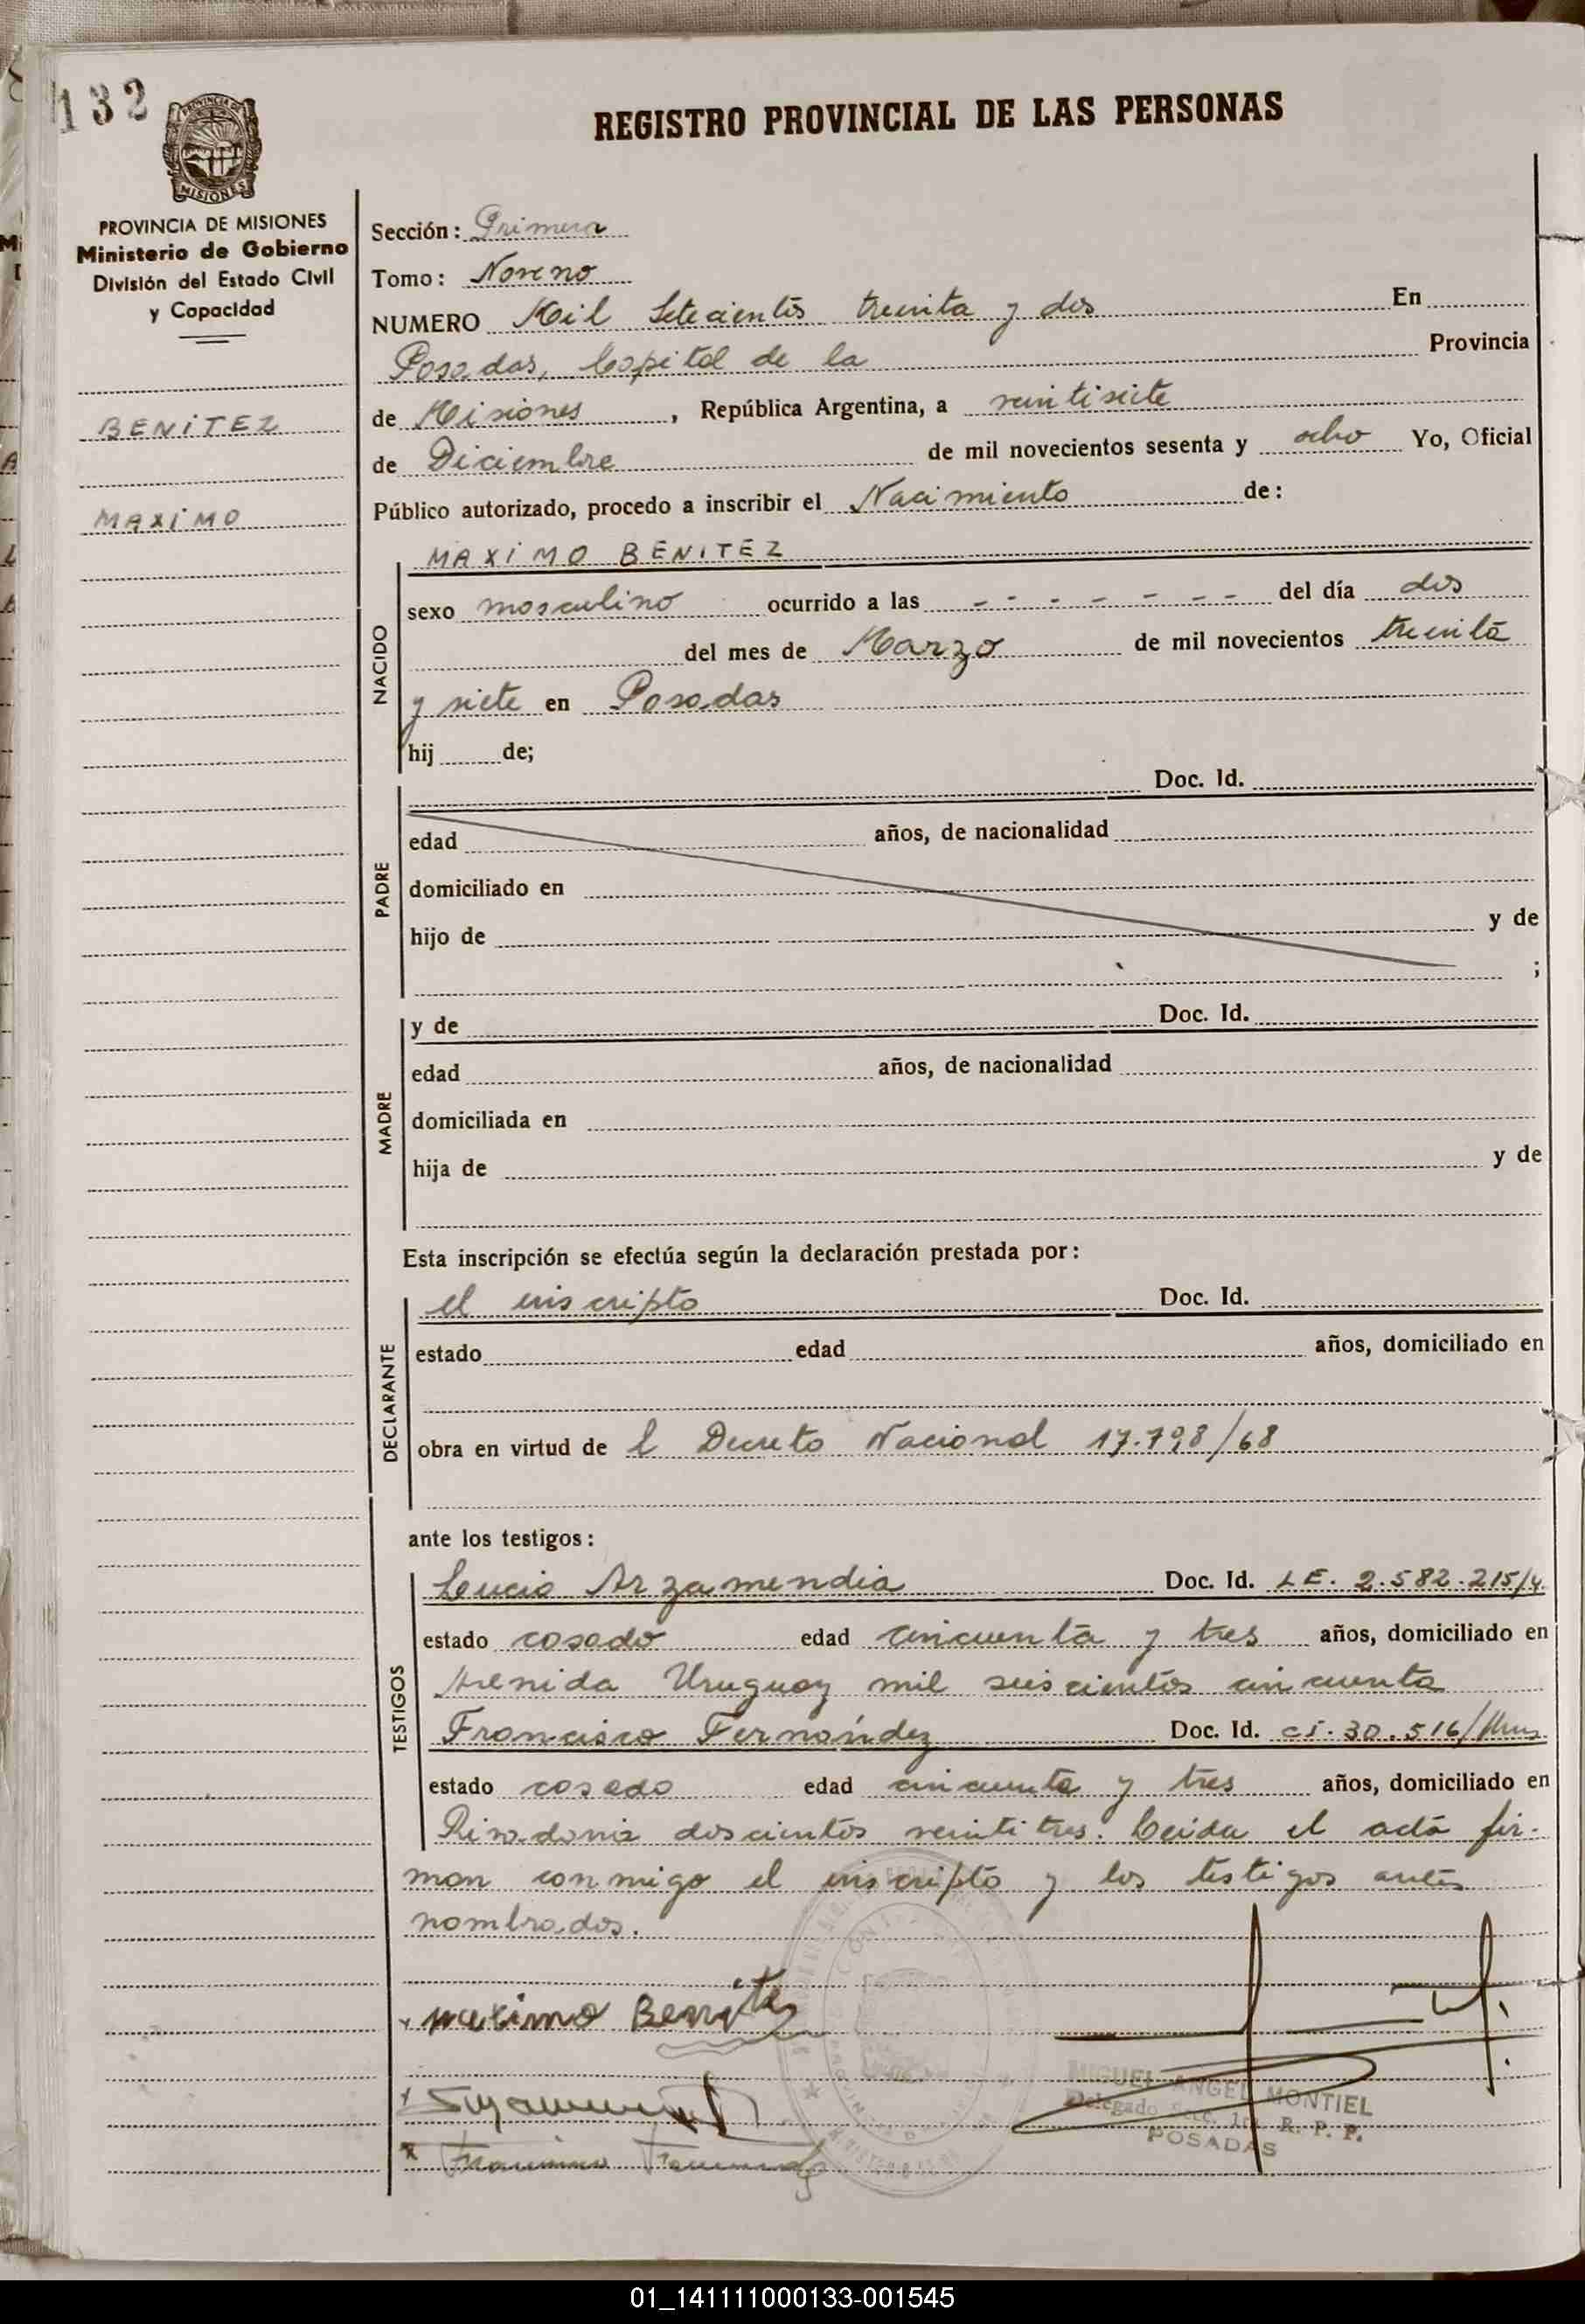 132
PROVINCIA DE MISIONES
REGISTRO PROVINCIAL DE LAS PERSONAS
PROVINCIA DE MISIONES
Ministerio de Gobierno
División del Estado Civil
y Capacidad
BENITEZ
MAXIMO
Sección: Primera
Tomo: Noveno
NUMERO Mil Setecientos treinta y dos En
Posadas, Capital de la Provincia
de Misiones, República Argentina, a veintisiete
de Diciembre de mil novecientos sesenta y ocho Yo, Oficial
Público autorizado, procedo a inscribir el Nacimiento de:
NACIDO
MAXIMO BENITEZ
sexo masculino ocurrido a las - - - - - - - del día dos
del mes de Marzo de mil novecientos treinta
y siete en Posadas
hij de;
PADRE
Doc. Id.
edad años, de nacionalidad
domiciliado en
hijo de y de
;
MADRE
y de Doc. Id.
edad años, de nacionalidad
domiciliada en
hija de y de
Esta inscripción se efectúa según la declaración prestada por:
DECLARANTE
el inscripto Doc. Id.
estado edad años, domiciliado en
obra en virtud de l Decreto Nacional 17.798/68
ante los testigos:
TESTIGOS
Lucio Arzamendia Doc. Id. LE. 2.582.215/4
estado casado edad cincuenta y tres años, domiciliado en
Avenida Uruguay mil seiscientos cincuenta
Francisco Fernández Doc. Id. CI. 30.516/Mnes.
estado casado edad cincuenta y tres años, domiciliado en
Rivadavia doscientos veintitres. Leída el acta fir-
man conmigo el inscripto y los testigos antes
nombrados.
Maximo Benitez
MIGUEL ANGEL MONTIEL
Delegado Secc. 1ra. R. P. P.
POSADAS
Francisco Fernandez
01_141111000133-001545